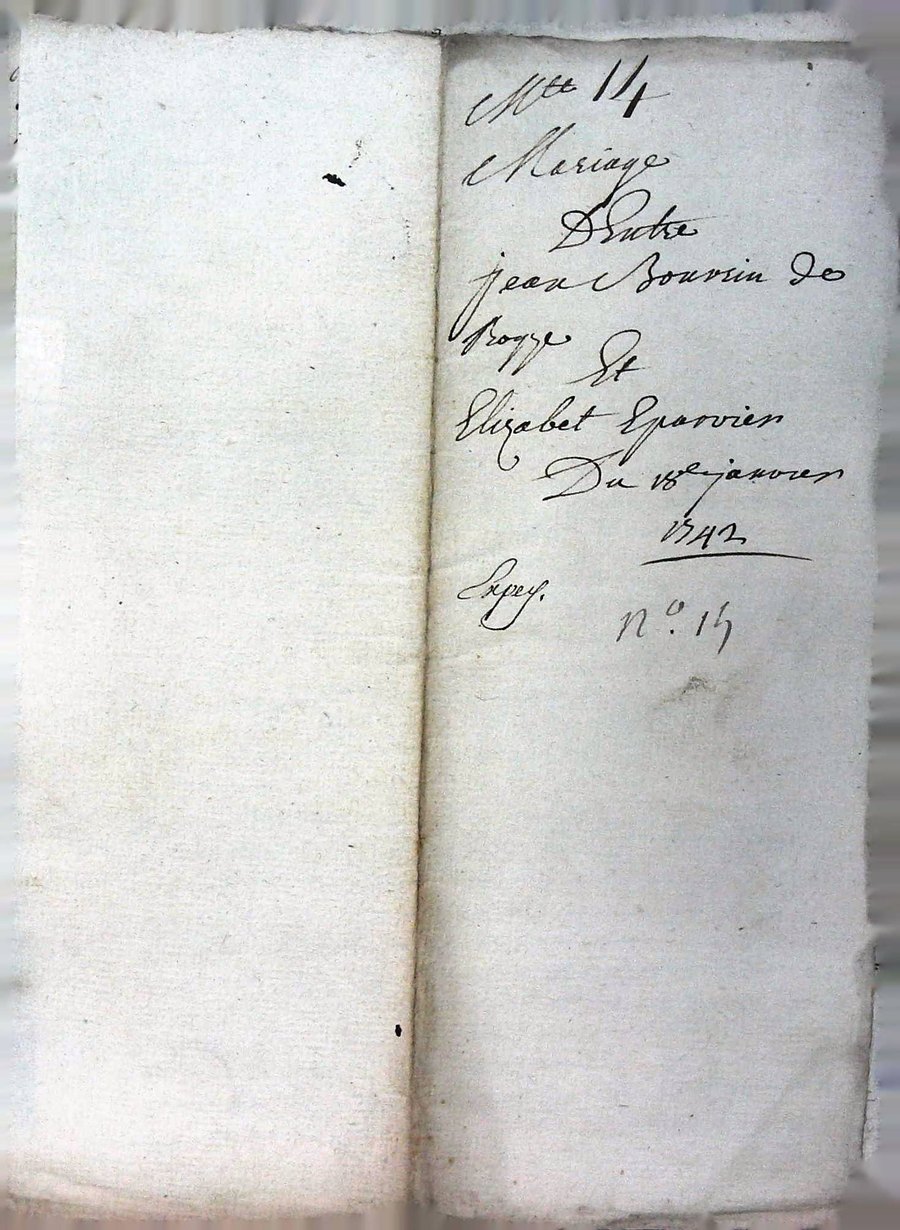 Mtt 14
Mariage
DEntre
jean Bouvrin de
Et
Elizabet Eparvier
Du 18e janvier
1742
Expej.
n°. 14